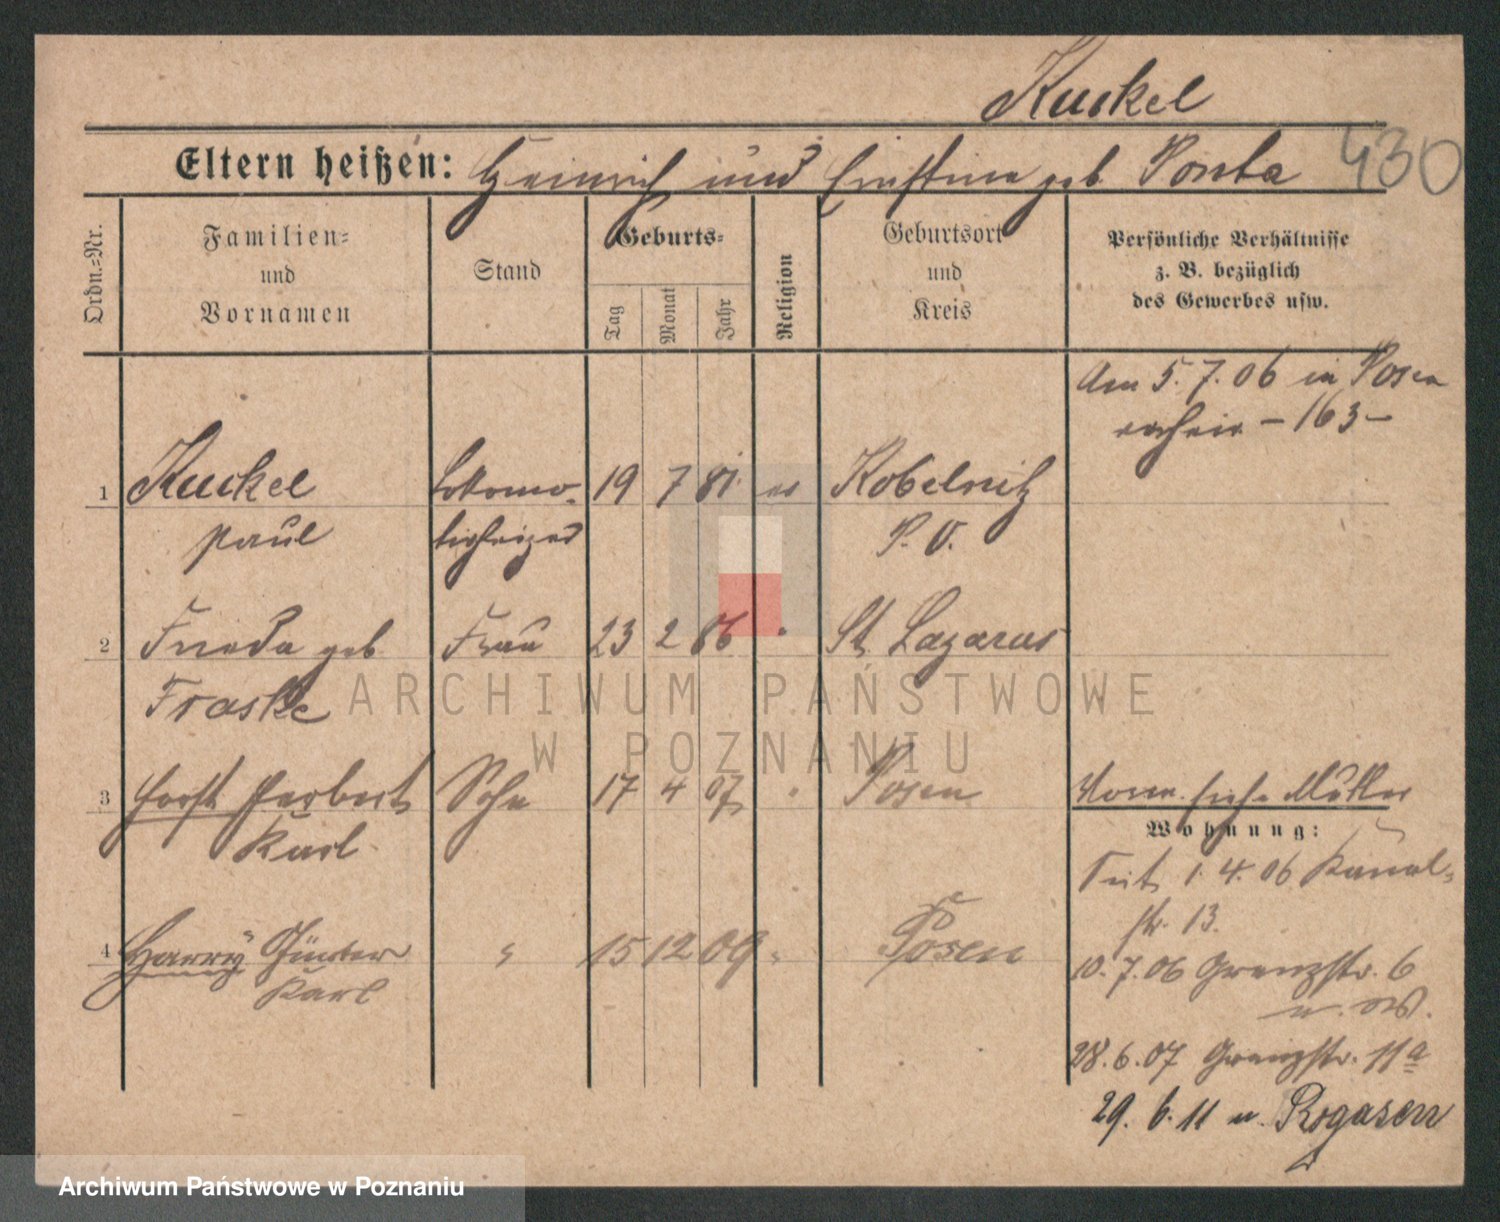 Kuckel
430
Eltern heißen: Heinrich und Ernstine geb. Ponta
Ordn.=Nr.
Familien=
und
Vornamen
Stand
Geburts=
Tag
Monat
Jahr
Religion
Geburtsort
und
Kreis
Persönliche Verhältnisse
z. B. bezüglich
des Gewerbes usw.
Am 5.7.06 in Posen
verheir. – 163 –
1 Kuckel Lokomo- 19 7 81 ev Kobelnitz
Paul tivheizer P. O.
2 Frieda geb Frau 23 2 86 " St. Lazarus
Fraske
3 Horst Herbert Sohn 17 4 07 " Posen
Karl
Vorm. siehe Mutter
Wohnung:
Seit 1.4.06 Kanal-
str. 13.
4 Harry Günter " 15 12 09 " Posen
Karl
10.7.06 Grenzstr. 6
28.6.07 Grenzstr. 11a
29.6.11 n. Rogasen
ARCHIWUM PAŃSTWOWE
W POZNANIU
Archiwum Państwowe w Poznaniu